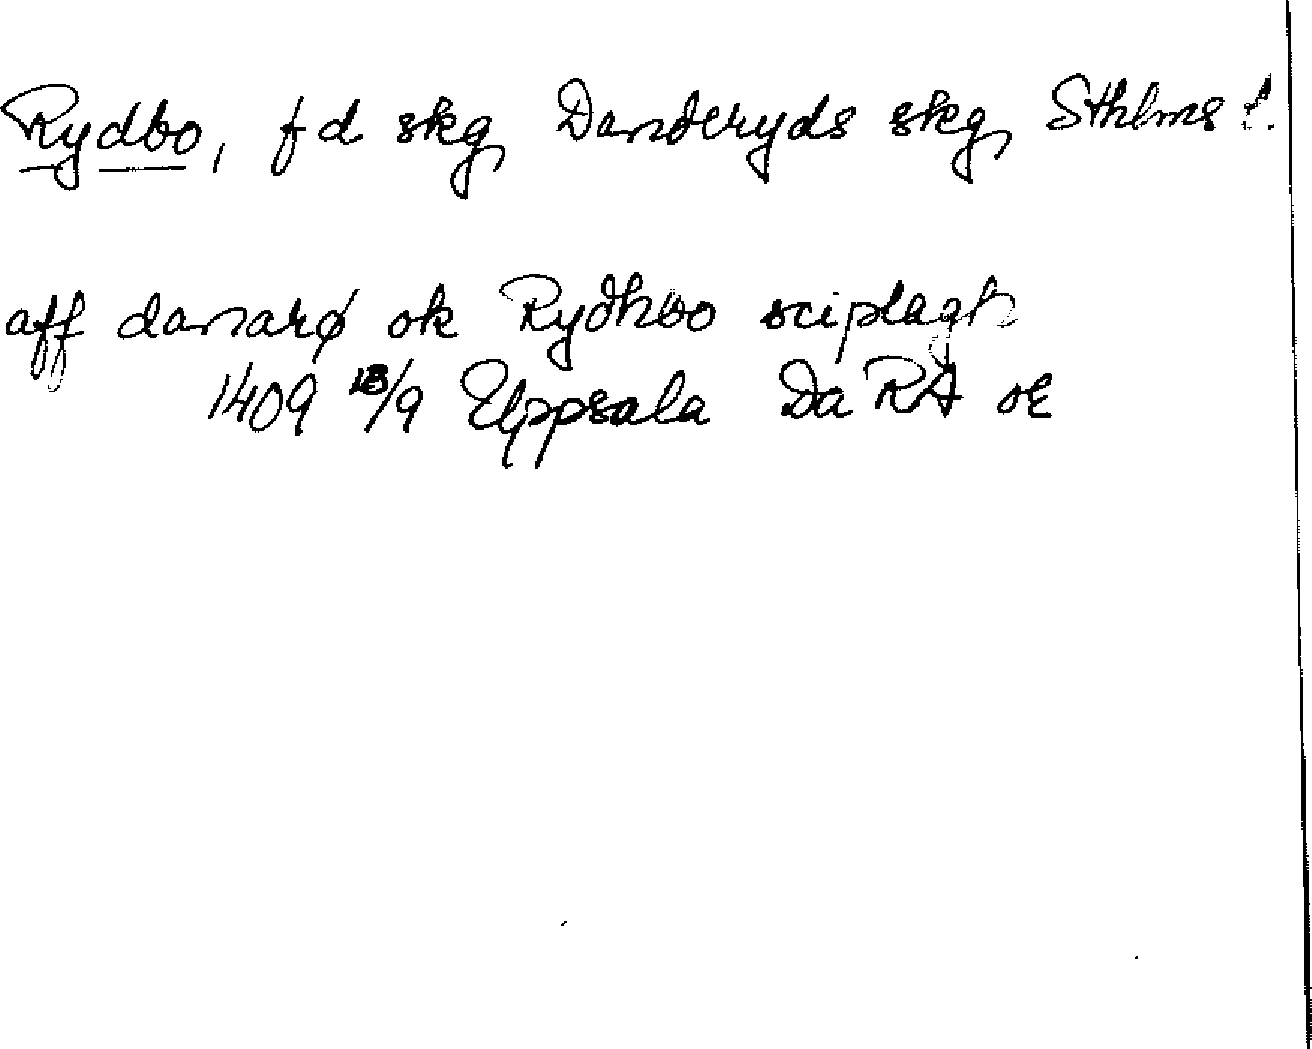 Rydbo, f d skg, Danderyds skg, Sthlms l.
aff danarø ok Rydhbo sciplagh
1409 13/9 Uppsala Da RA oE